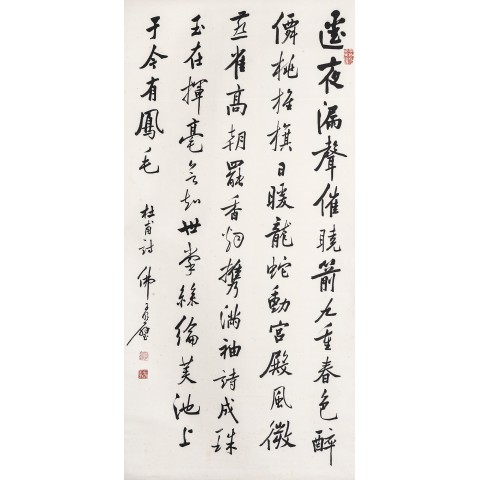 夜漏聲催曉箭九重春色醉
僊桃旌旗日暖龍蛇動宮殿風微
燕雀高朝罷香烟攜滿袖詩成珠
玉在揮毫欲知世掌絲綸美池上
于今有鳳毛 杜甫詩 佛